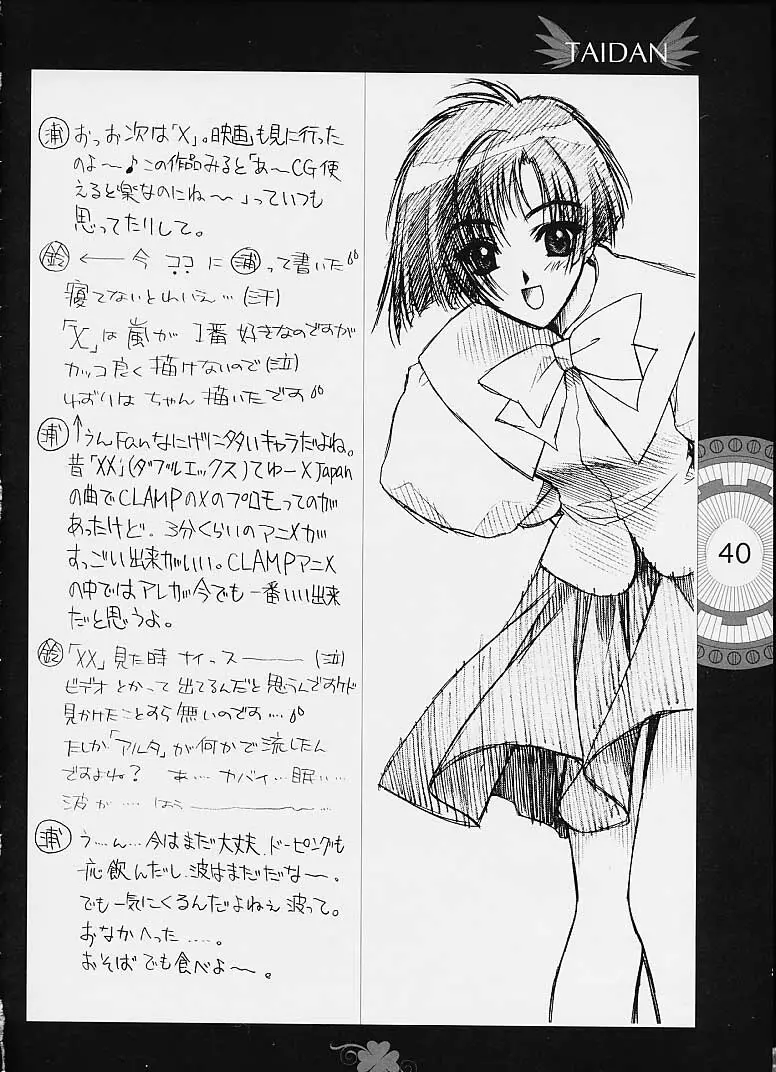 TAIDAN
浦 おっお次は「X」。映画も見に行った
のよ〜♪この作品みると「あ〜CG使
えると楽なのにね〜」っていつも
思ってたりして。
鈴 ← 今 ココ に 浦 って書いた
寝てないとわいえ…(汗)
「X」は嵐が 1番 好きなのですが
カッコ良く 描けないので(泣)
ゆずりは ちゃん 描いたです
浦 ↑うんFanなにげに多いキャラだよね。
昔「XX」(ダブルエックス)てゆーX Japan
の曲でCLAMPのXのプロモってのが
あったけど、3分くらいのアニメが
すっごい出来がいい。CLAMPアニメ
の中ではアレが今でも一番いい出来
だと思うよ。
鈴 「XX」見た時 ナイっスーーー(泣)
ビデオ とかって 出てるんだと 思うんですケド
見かけたことすら 無いのです…
たしか「アルタ」が何かで流したん
ですよね? あ… カバイ…眠い…
波が… はぅーーー…
浦 う……ん…今はまだ大丈夫、ドーピングも
一応飲んだし、波はまだだな〜。
でも一気にくるんだよねぇ 波って。
おなかへった……。
おそばでも食べよ〜。
40